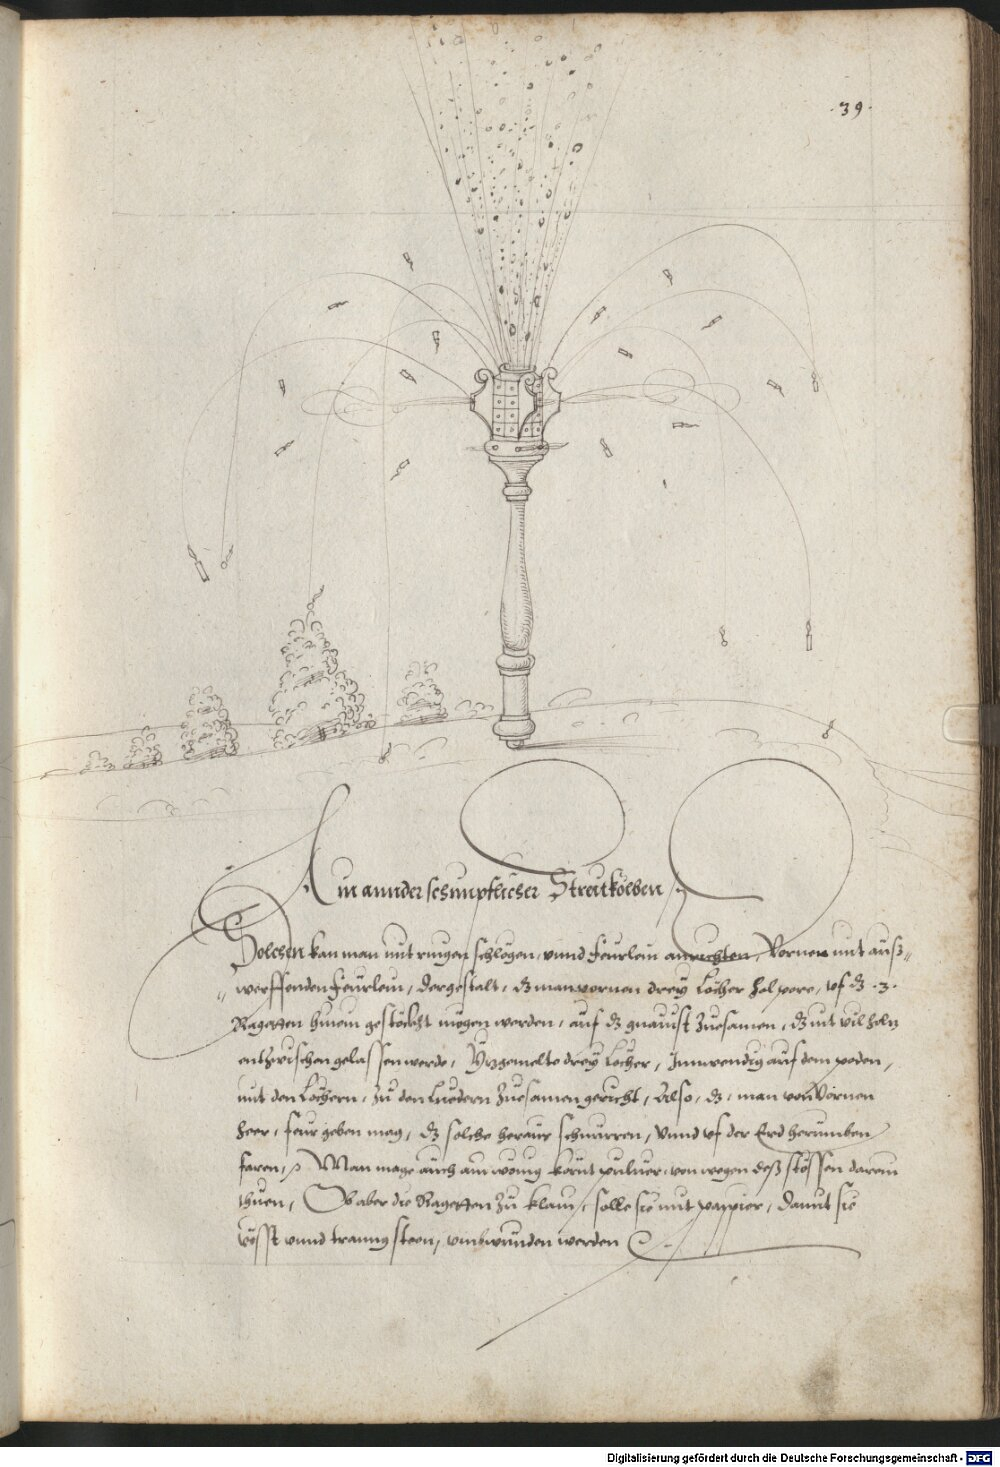 .39.
Ain annder schimpflicher Streitkolben
Solchen kan man mit ringen schlögen, vnnd feurlein anrichten, Vornen mit auß=
werffenden feurlein, dergestalt, dz man vornen drey Löcher hol pore, vf dz .3.
Ragetten hinein gestöckht mögen werden, auf dz gnauist Zuesamen, dz nit vil holz
entzwischen gelassen werde, Vzgemelte drey Löcher, Innwendig auf dem poden,
mit den Löchern, zu den Luedern Zuesamen gericht, Also, dz, man von Vornen
heer, feur geben mag, dz solche herauß schnurren, Vnnd vf der Erd herumben
faren, Man mags auch ain wenig körnt puluer, von wegen deß stossen darein
thuen, Ob aber die Ragetten Zu klain, solle sie mit pappier, damit sie
vösst vnnd tranng steen, vmbwunden werden
Digitalisierung gefördert durch die Deutsche Forschungsgemeinschaft - DFG